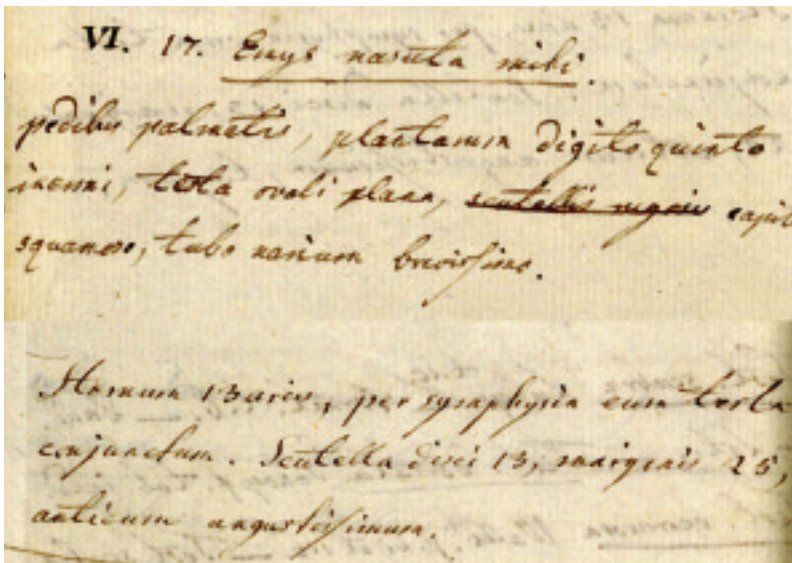 VI. 17. Emys nasuta mihi.
pedibus palmatis, plantarum digito quinto
inermi, testa ovali plana, scutellis rugosis capite
squamoso, tubo narium brevissimo.
Sternum 13 arië, per symphysin cum testa
conjunctum. Scutella disci 13, marginis 25,
anticum angustissimum.